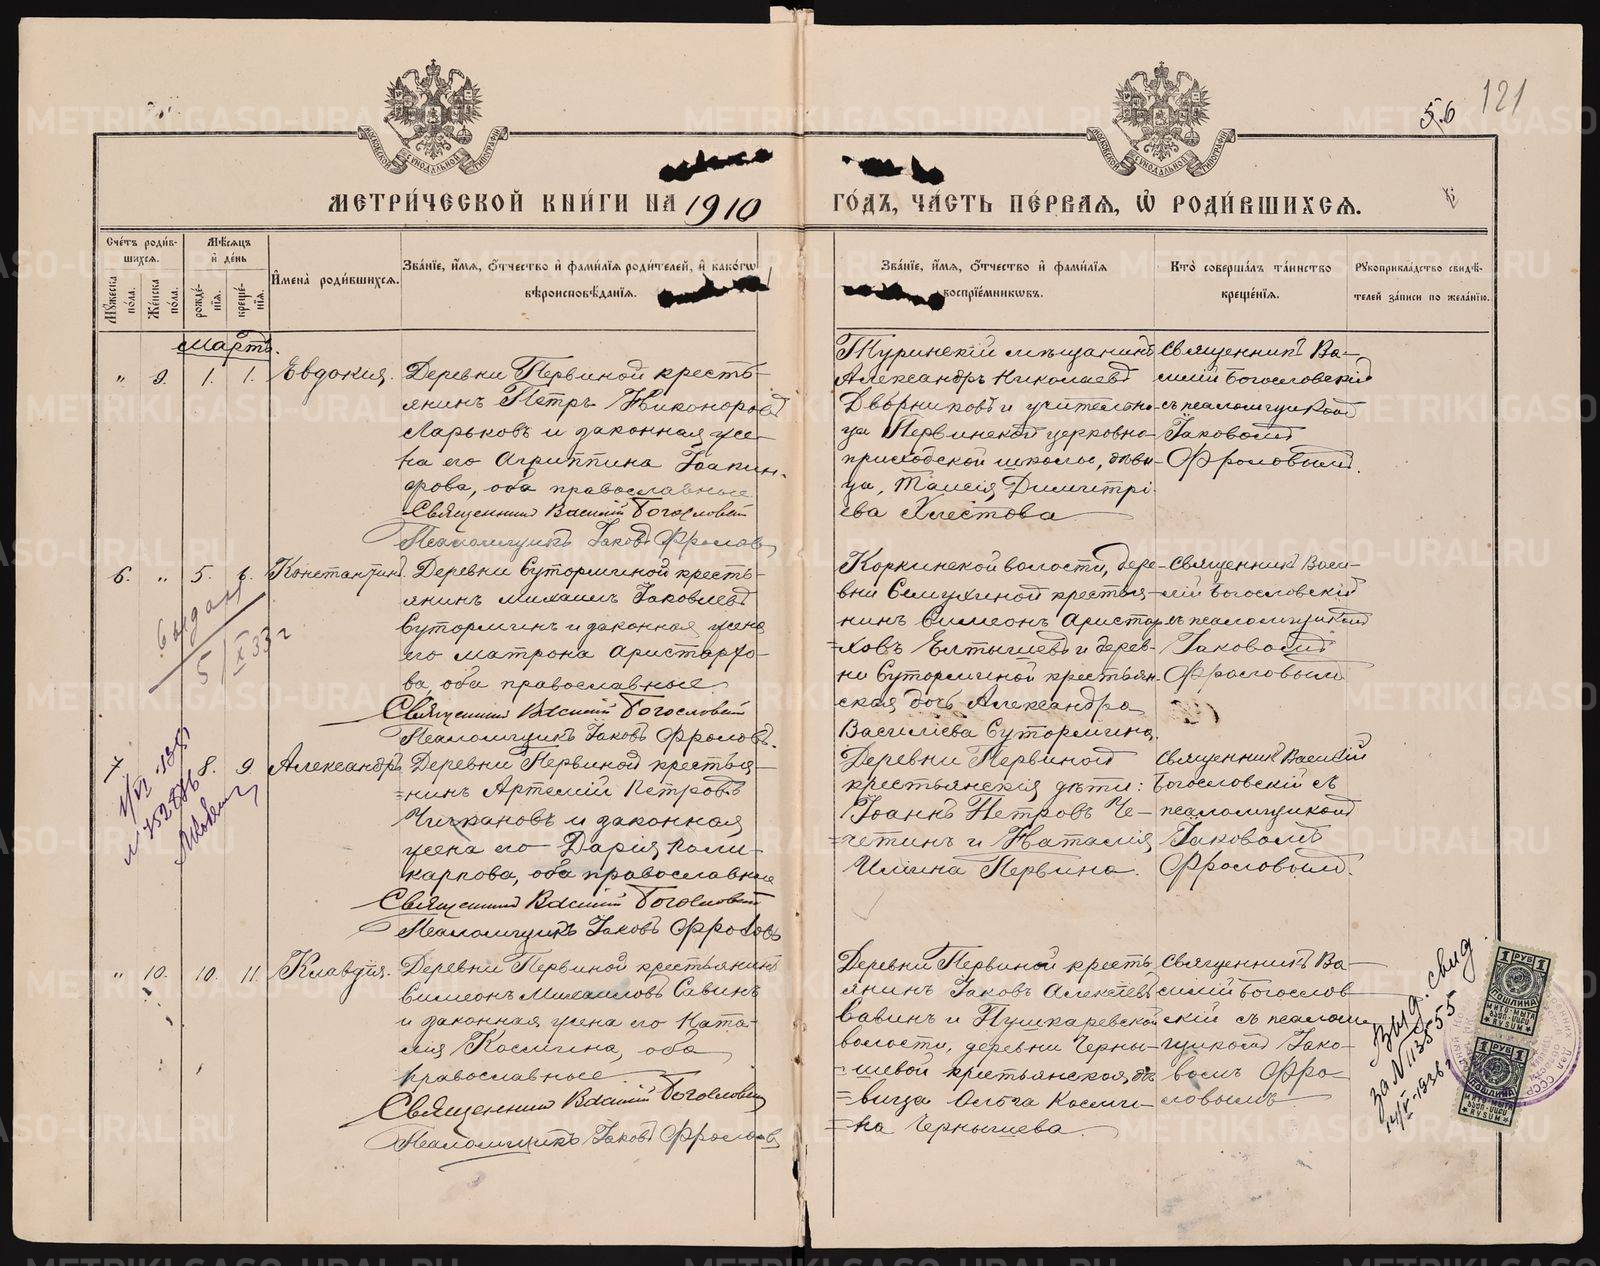 121
5.6
МОСКОВСКОЙ СѴНОДАЛЬНОЙ ТИПОГРАФІИ
МОСКОВСКОЙ СѴНОДАЛЬНОЙ ТИПОГРАФІИ
МЕТРИ́ЧЕСКОЙ КНИ́ГИ НА 1910 ГО́ДЪ, ЧА́СТЬ ПЕ́РВАЯ, Ѡ РОДИ́ВШИХСЯ.
Сче́тъ роди́в-
шихся.
Мѣ́сяцъ
и҆ де́нь
Мꙋ́жеска по́ла.
Же́нска по́ла.
рожде́-
нїя.
креще́-
нїя.
И҆мена̀ роди́вшихся.
Зва́нїе, и҆́мя, ѻ҆́тчество и҆ фами́лїя роди́телей, и҆ како́гѡ
вѣроисповѣ́данїя.
Зва́нїе, и҆́мя, ѻ҆́тчество и҆ фами́лїя
воспрїе́мникѡвъ.
Кто̀ соверша́лъ та́инство
креще́нїя.
Рꙋкоприкла́дство свидѣ́-
телей за́писи по жела́нїю.
Мартъ.
" 9. 1. 1. Евдокия.
Деревни Первиной кресть-
янинъ Петръ Никоноровъ
Ларьковъ и законная же-
на его Агриппина Іакин-
фова, оба православные
Священникъ Василій Богословскій
Псаломщикъ Іаковъ Фроловъ
Туринскій мѣщанинъ
Александръ Николаевъ
Дворниковъ и учительни-
ца Первинской церковно-
приходской школы, дѣви-
ца, Таисія Димитрі-
ева Хлестова
Священникъ Ва-
силій Богословскій
съ псаломщикомъ
Іаковомъ
Фроловымъ.
6. " 5. 6. Константинъ
Деревни Сутормичной кресть-
янинъ Михаилъ Іаковлевъ
Сутормичнъ и законная жена
его Матрона Аристархо-
ва, оба православные.
Священникъ Василій Богословскій
Псаломщикъ Іаковъ Фроловъ.
Коркинской волости, дере-
вни Семухиной крестья-
нинъ Симеонъ Аристар-
ховъ Елтышевъ и дерев-
ни Сутормичной крестьян-
ская дочь Александра
Василіева Сутормина.
Священникъ Васи-
лій Богословскій
съ псаломщикомъ
Іаковомъ
Фроловымъ
5/X 33 г
7 8. 9. Александръ
Деревни Первиной крестья-
нинъ Артемій Петровъ
Чичкановъ и законная
жена его Дарія Поли-
карпова, оба православные
Священникъ Василій Богословскій
Псаломщикъ Іаковъ Фроловъ
Деревни Первиной
крестьянскія дѣти:
Іоаннъ Петровъ Че-
четинъ и Наталія
Илиина Первина.
Священникъ Василій
Богословскій съ
псаломщикомъ
Іаковомъ
Фроловымъ.
" 10. 10. 11. Клавдія.
Деревни Первиной крестьянинъ
Симеонъ Михаиловъ Савинъ
и законная жена его Ната-
лия Космина, оба
православные
Священникъ Василій Богословскій
Псаломщикъ Іаковъ Фроловъ
Деревни Первиной кресть-
янинъ Іаковъ Алексѣевъ
Савинъ и Пушкаревской
волости, деревни Черны-
шевой крестьянская дѣ-
вица Ольга Косми-
на Чернышева.
Священникъ Ва-
силій Богослов-
скій съ псалом-
щикомъ Іако-
вомъ Фро-
ловымъ
Выд. свид.
за № 113555
14/V-1936
1 РУБ 1
ПОШЛИНА
1 РУБ 1
ПОШЛИНА
METRIKI.GASO-URAL.RU